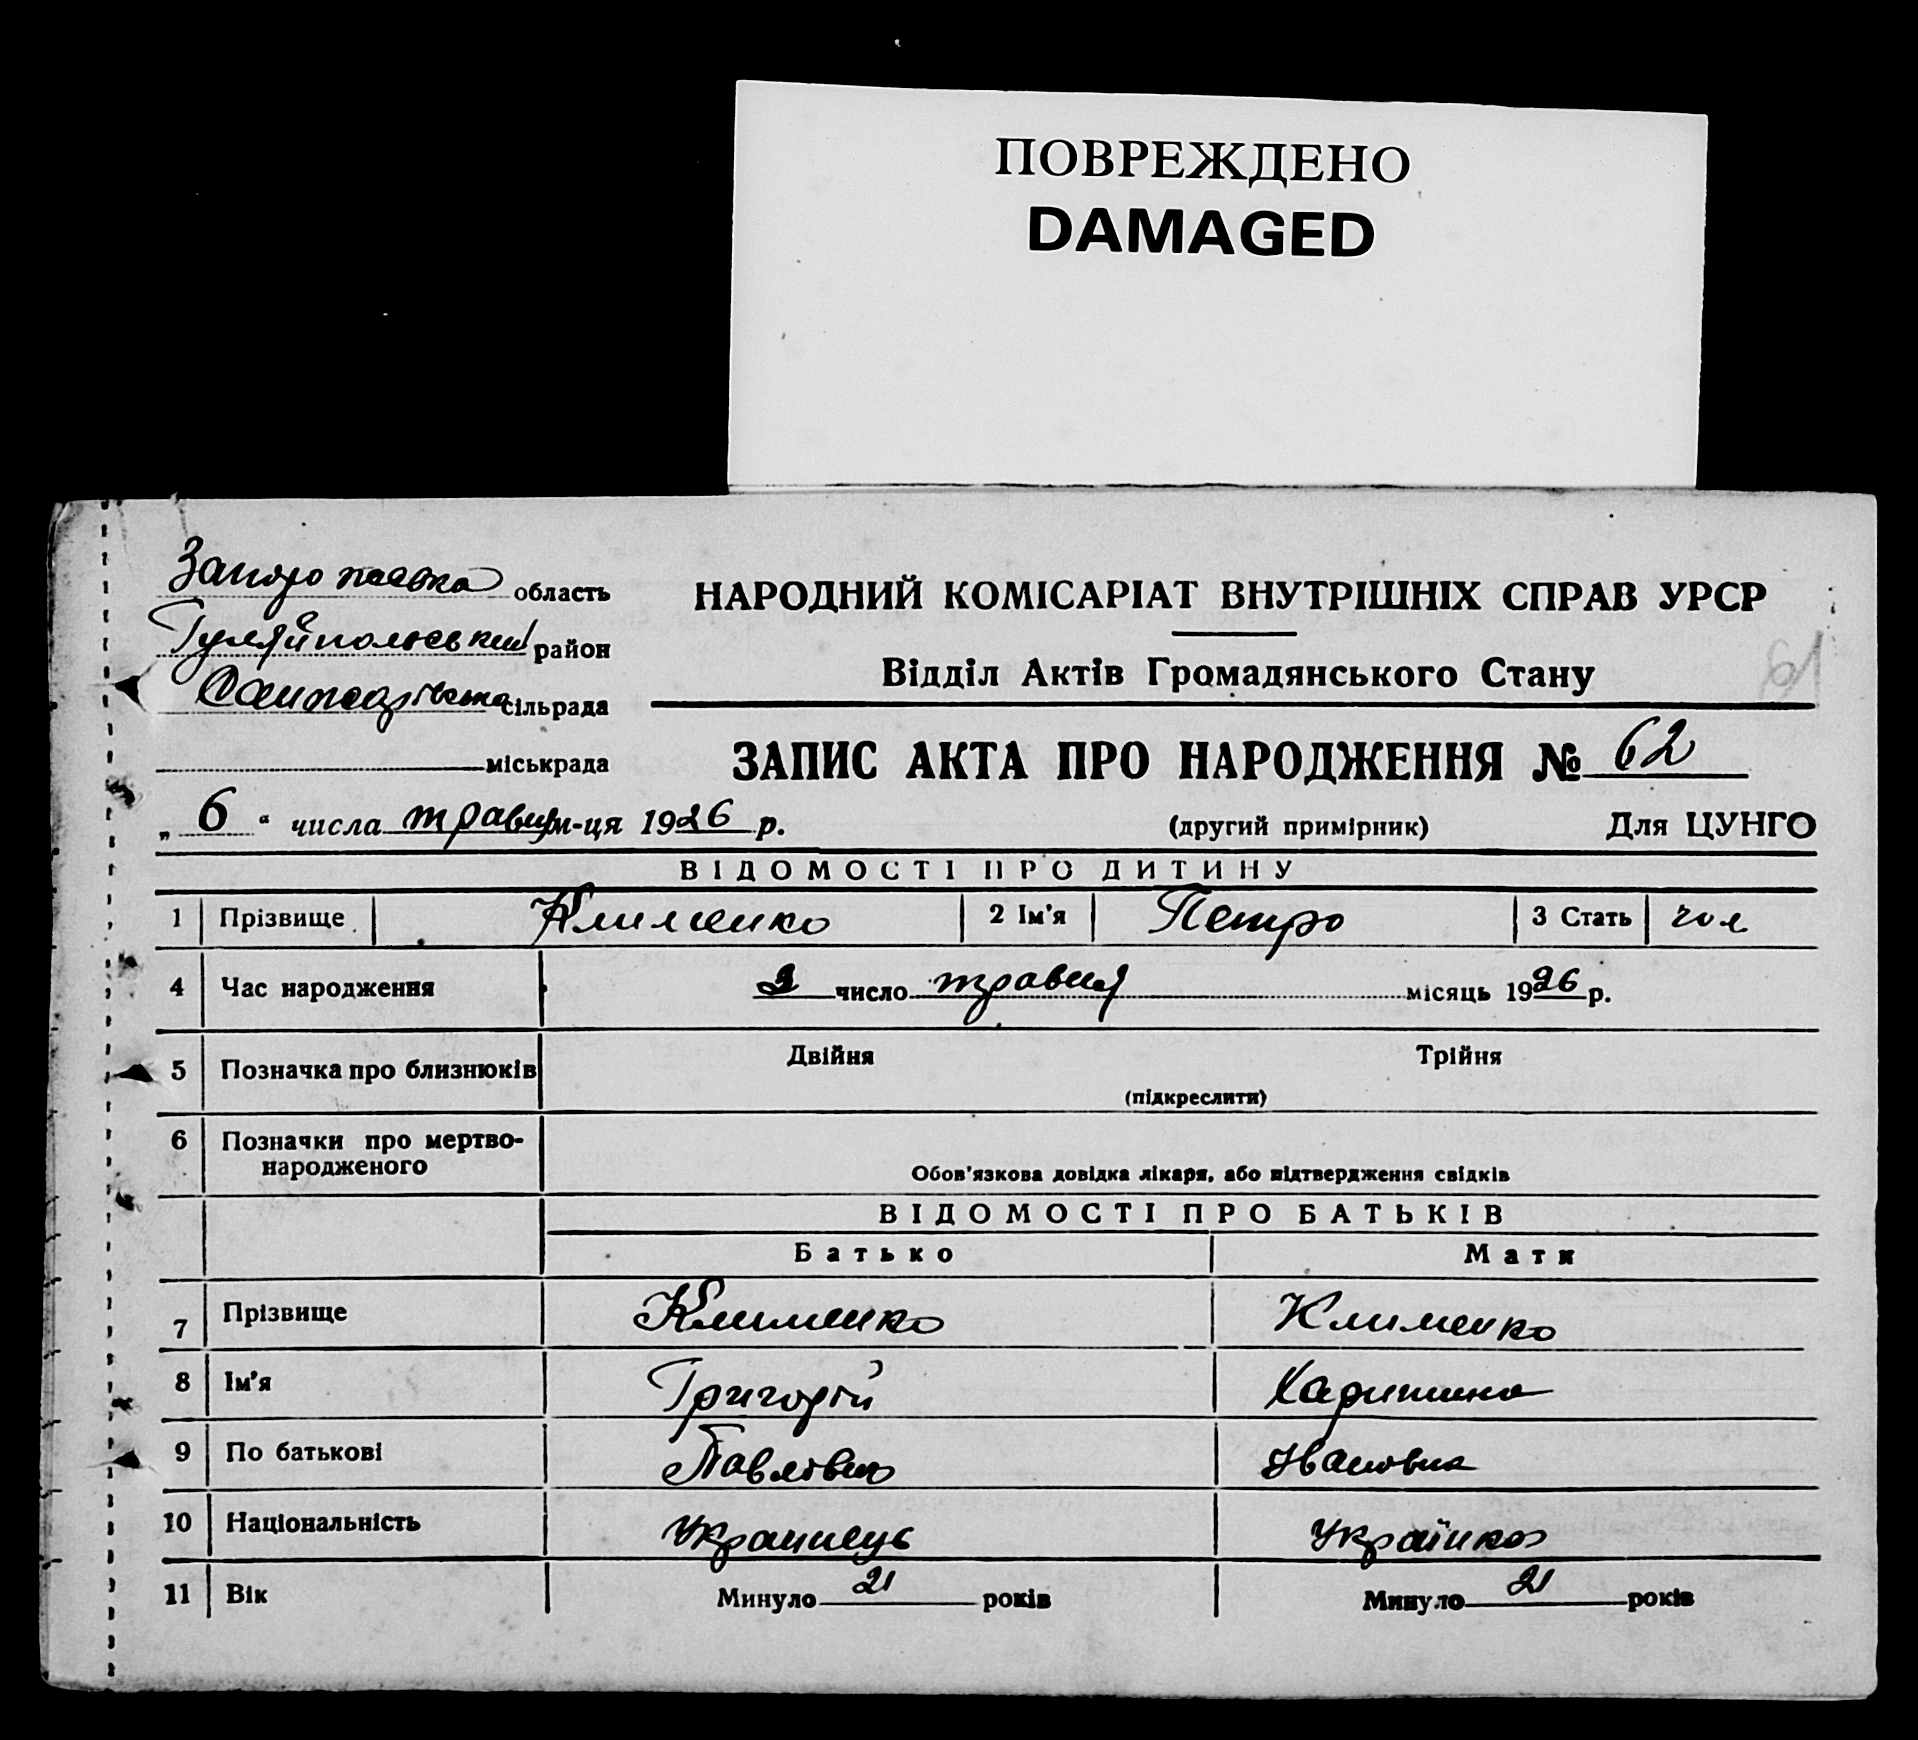 ПОВРЕЖДЕНО
DAMAGED
область
Гуляйпольський район
сільрада
міськрада
НАРОДНИЙ КОМІСАРІАТ ВНУТРІШНІХ СПРАВ УРСР
Відділ Актів Громадянського Стану
61
ЗАПИС АКТА ПРО НАРОДЖЕННЯ № 62
„ 6 “ числа травня м-ця 1926 р.
(другий примірник) Для ЦУНГО
ВІДОМОСТІ ПРО ДИТИНУ
1 Прізвище Клименко 2 Ім'я Петро 3 Стать чол
4 Час народження число травня місяць 1926 р.
5 Позначка про близнюків Двійня Трійня
(підкреслити)
6 Позначки про мертво-
народженого
Обов'язкова довідка лікаря, або підтвердження свідків
ВІДОМОСТІ ПРО БАТЬКІВ
Батько Мати
7 Прізвище Клименко Клименко
8 Ім'я Григорій Харитина
9 По батькові Павлович Ивановна
10 Національність Українець Українка
11 Вік Минуло 21 років Минуло 21 років